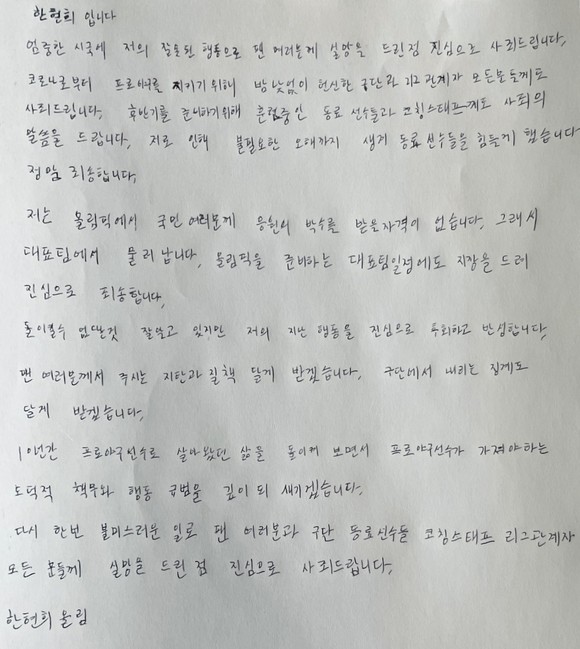 한현희 입니다
엄중한 시국에 저의 잘못된 행동으로 팬 여러분께 실망을 드린점 진심으로 사죄드립니다.
코로나로부터 프로야구를 지키기 위해 밤낮없이 헌신한 구단과 리그 관계자 모든분들께도
사죄드립니다. 후반기를 준비하기위해 훈련중인 동료 선수들과 코칭스태프께도 사죄의
말씀을 드립니다. 저로 인해 불필요한 오해까지 생겨 동료선수들을 힘들게 했습니다
정말 죄송합니다.
저는 올림픽에서 국민 여러분께 응원의 박수를 받을자격이 없습니다. 그래서
대표팀에서 물러납니다. 올림픽을 준비하는 대표팀일정에도 지장을 드려
진심으로 죄송합니다.
돌이킬수 없단것 잘알고 있지만 저의 지난 행동을 진심으로 후회하고 반성합니다.
팬 여러분께서 주시는 지탄과 질책 달게 받겠습니다. 구단에서 내리는 징계도
달게 받겠습니다.
10년간 프로야구선수로 살아왔던 삶을 돌이켜 보면서 프로야구선수가 가져야하는
도덕적 책무와 행동 규범을 깊이 되 새기겠습니다.
다시 한번 불미스러운 일로 팬 여러분과 구단 동료선수들 코칭스태프 리그관계자
모든 분들께 실망을 드린 점 진심으로 사죄드립니다.
한현희 올림